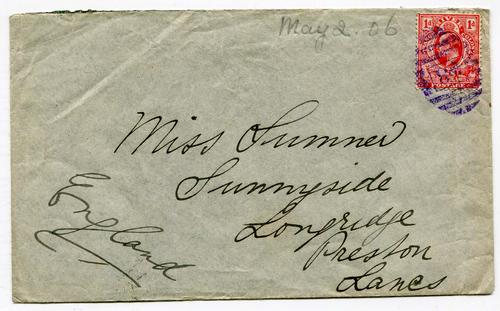 May 2. 06
1d 1d
POSTAGE
Miss Sumner
Sunnyside
Longridge
Preston
Lancs
England